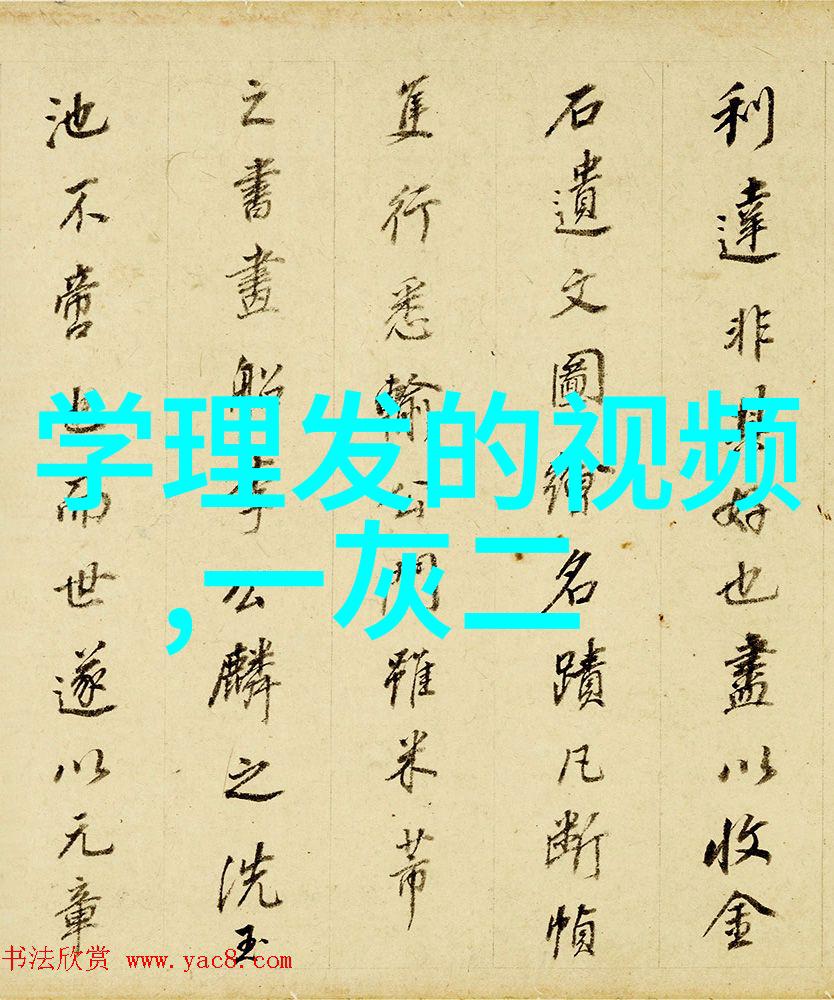 利達非其好也盡以收金
石遺文圖繪名蹟凡斷幀
隻行悉輸公門雖米芾
之書畫船李公麟之洗玉
池不啻也而世遂以元章
学理发的视频
,一灰二
书法欣赏 www.yac8.com